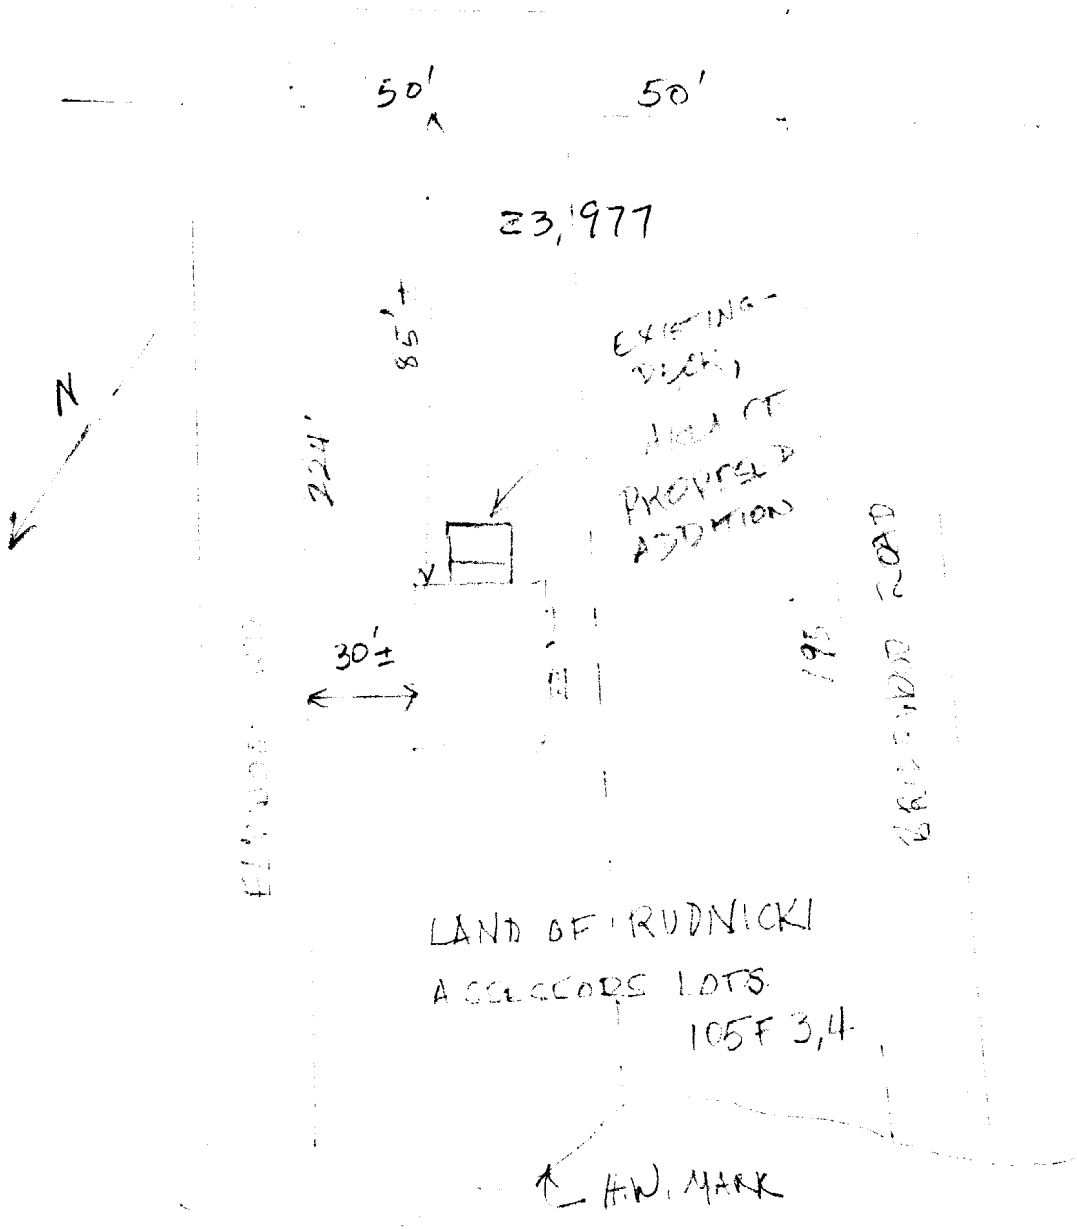 50' 50'
23,977
85' ±
EXISTING
DECK,
AREA OF
PROPOSED
ADDITION
N
224'
30'±
195
ROAD
LAND OF RUDNICKI
ASSESSORS LOTS
105F 3,4
H.W. MARK